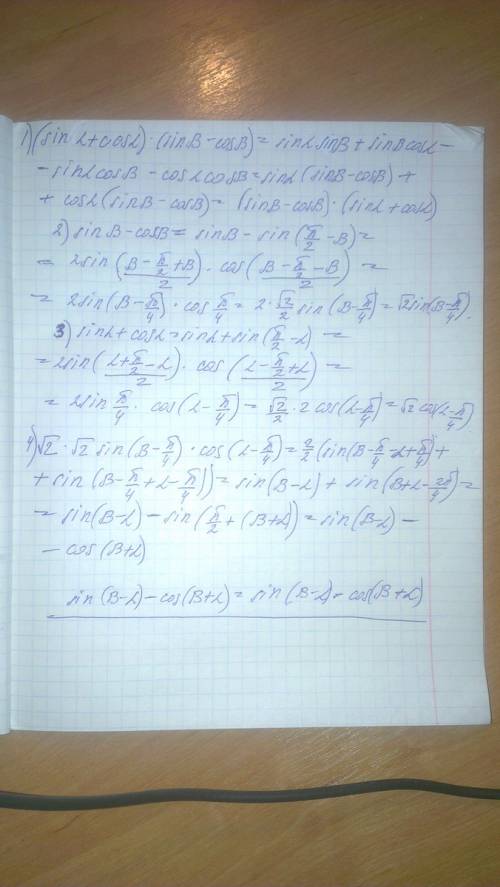 1) (sin α + cos α) · (sin β - cos β) = sin α sin β + sin β cos α -
- sin α cos β - cos α cos β = sin α (sin β - cos β) +
+ cos α (sin β - cos β) = (sin β - cos β) · (sin α + cos α)
2) sin β - cos β = sin β - sin (π/2 - β) =
= 2 sin (β - π/2 + β)/2 · cos (β - π/2 - β)/2 =
= 2 sin (β - π/4) · cos π/4 = 2 · √2/2 sin (β - π/4) = √2 sin (β - π/4).
3) sin α + cos α = sin α + sin (π/2 - α) =
= 2 sin (α + π/2 - α)/2 · cos (α - π/2 + α)/2 =
= 2 sin π/4 · cos (α - π/4) = √2/2 · 2 cos (α - π/4) = √2 cos (α - π/4)
4) √2 · √2 sin (β - π/4) · cos (α - π/4) = 2/2 (sin (β - π/4 - α + π/4) +
+ sin (β - π/4 + α - π/4)) = sin (β - α) + sin (β + α - 2π/4) =
= sin (β - α) - sin (π/2 + (β + α)) = sin (β - α) -
- cos (β + α)
sin (β - α) - cos (β + α) = sin (β - α) - cos (β + α)